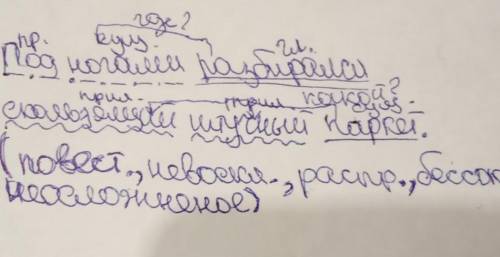 где?
пр. сущ. гл.
Под ногами разбирался
прил. прил. какой? сущ.
скользкий штучный паркет.
(повест., невоскл., распр., бессоюз
неосложненое)